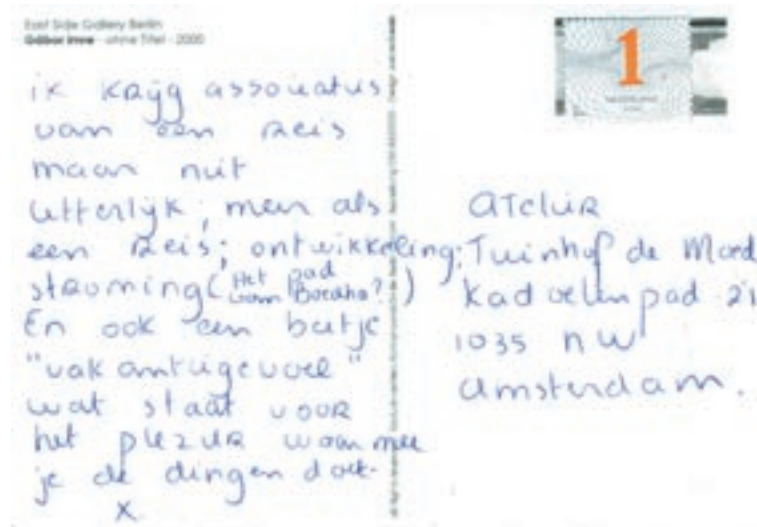 East Side Gallery Berlin
Gábor Imre - ohne Titel - 2000
1
ik krijg associaties
van een reis
maar niet
letterlijk, meer als
een reis; ontwikkeling;
stroming (Het pad van Boedha?)
En ook een beetje
"vakantiegevoel"
wat staat voor
het plezier waarmee
je de dingen doet.
x
atelier
Tuinhof de Moed
Kadoelenpad 21
1035 NW
Amsterdam.